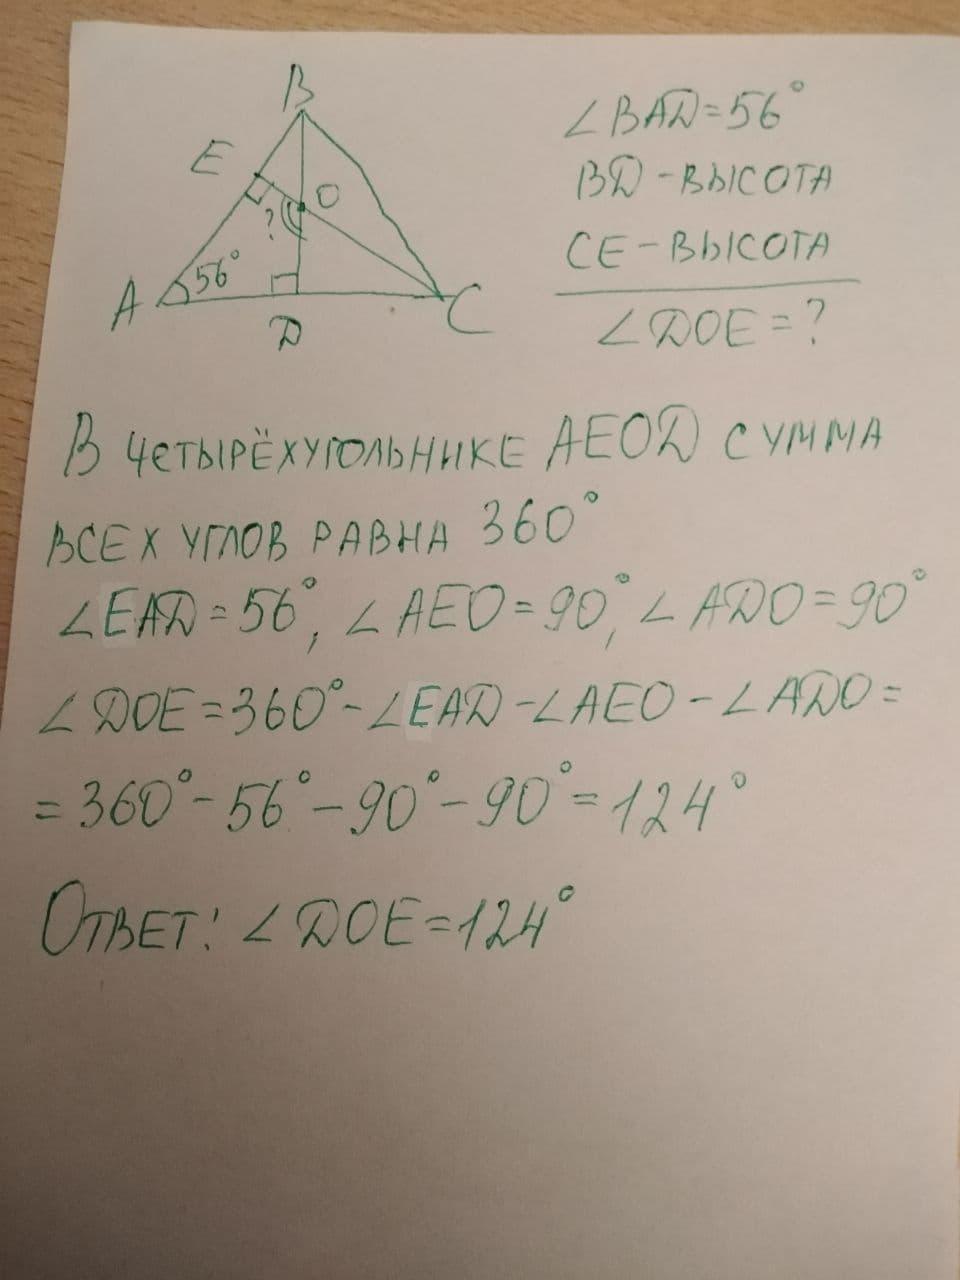 B
E
O
?
56°
A
D
C
∠BAD=56°
BD-ВЫСОТА
CE-ВЫСОТА
∠DOE=?
В ЧЕТЫРЁХУГОЛЬНИКЕ AEOD СУММА
ВСЕХ УГЛОВ РАВНА 360°
∠EAD=56°, ∠AEO=90°, ∠ADO=90°
∠DOE=360°-∠EAD-∠AEO-∠ADO=
=360°-56°-90°-90°=124°
ОТВЕТ: ∠DOE=124°